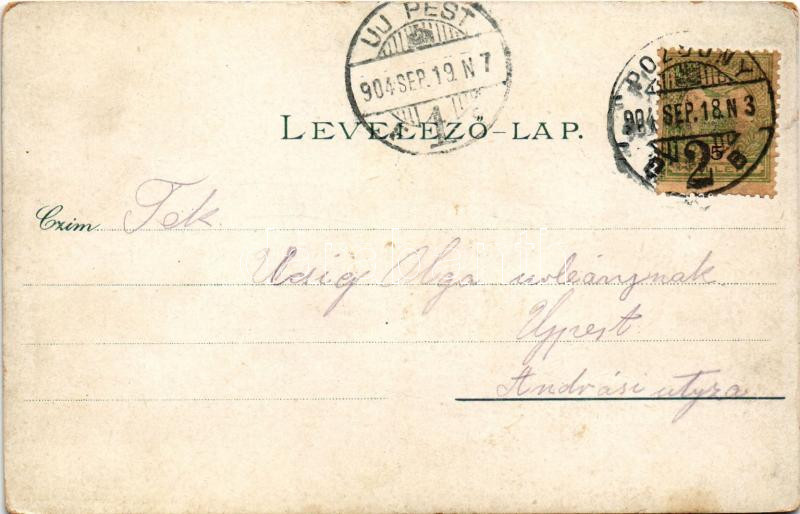 UJ PEST
904 SEP. 19. N 7
1
POZSONY
904 SEP. 18. N 3
2 B
5
LEVELEZŐ-LAP.
Czim Tek.
Olga urleánynak
Ujpest
Andrási utyza